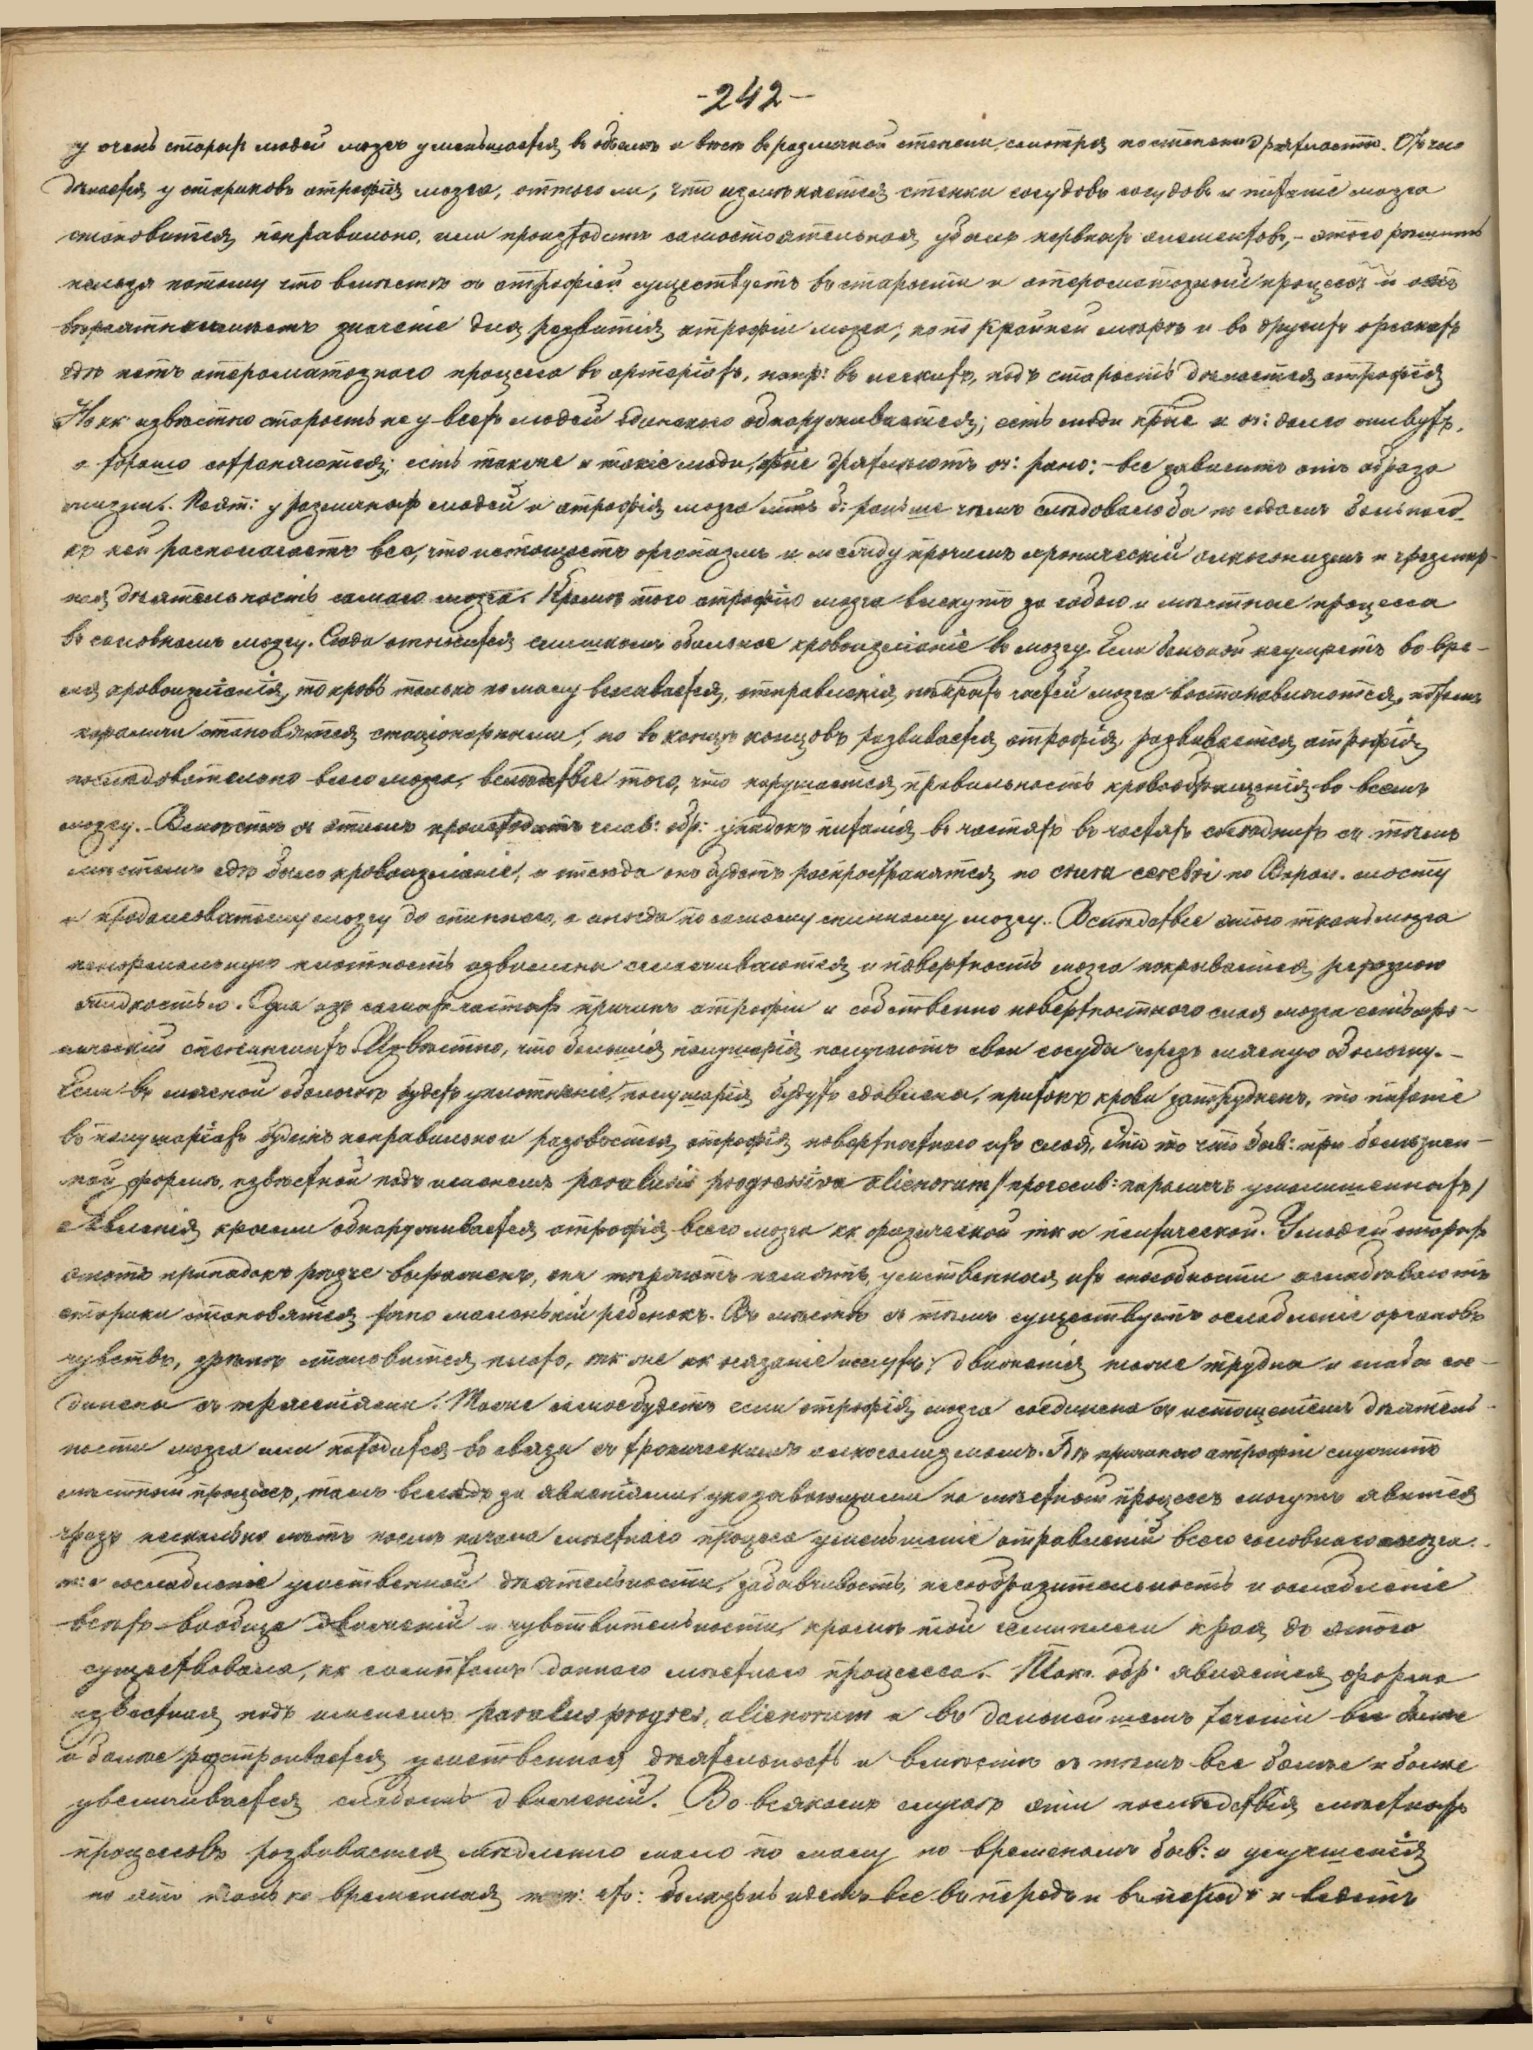 -242-
у очень старых людей мозгъ уменьшается въ объемѣ и вѣсѣ въ различной степени, смотря по степени дряхлости. Отчего
дѣлается у стариковъ атрофія мозга, оттого ли, что измѣняется стенки сосудовъ сосудовъ и питаніе мозга
становится неправильно, или происходитъ самостоятельная убыль нервныхъ элементовъ, - этого рѣшить
нельзя потому что вмѣстѣ съ атрофіей существуетъ въ старости и атероматозный процессъ и онъ
вѣроятно имѣетъ значеніе для развитія атрофіи мозга; но по крайней мѣрѣ и въ другихъ органахъ
гдѣ нетъ атероматознаго процесса въ артеріяхъ, напр: въ легкихъ, подъ старость дѣлается атрофія
Но кк извѣстно старость не у всехъ людей одинаково обнаруживается; есть люди крые и оч: долго живутъ,
и хорошо сохраняются; есть также и такіе люди, крые дряхлѣютъ оч: рано: - все зависитъ отъ образа
жизни. Поэт: у различныхъ людей и атрофія мозга мтъ б: раньше чѣмъ слѣдовало бы по годамъ больнаго,
къ ней располагаетъ все, что истощаетъ организмъ и между прочимъ хроническій алкоголизмъ и чрезмѣр-
ная дѣятельность самаго мозга. Кромѣ того атрофію мозга влекутъ за собою и мѣстные процессы
въ головномъ мозгу. Сюда относится слишкомъ обильное кровоизліяніе въ мозгу. Если больной не умретъ во вре-
мя кровоизліянія, то кровь только по малу всасывается, отправленія нѣкрыхъ частей мозга востановляются, потомъ
параличи становятся стаціонарными, но въ концѣ концовъ развивается атрофія, развивается атрофія
последовательно всего мозга, вслѣдствіе того, что нарушается правильность кровообращенія во всемъ
мозгу. - Вмѣстѣ съ этимъ происходитъ глав: обр: упадокъ питанія въ частяхъ въ частяхъ соседнихъ съ тѣмъ
мѣстомъ гдѣ было кровоизліяніе, и отсюда оно будетъ распространятся по crura cerebri по Варол. мосту
и продолговатому мозгу до спиннаго, а иногда по самому спинному мозгу. Вслѣдствіе этого ткань мозга
ненормальную плотность извилины сглаживаются и поверхность мозга покрывается серозною
жидкостью. Одна изъ самыхъ частыхъ причинъ атрофіи и собственно поверхностнаго слоя мозга есть хро-
ническій менингитъ. Извѣстно, что большія полушарія получаютъ свои сосуды черезъ мягкую оболочку. -
Если въ мягкой оболочкѣ будетъ уплотненіе, полушарія будутъ сдавлены, притокъ крови затрудненъ, то питаніе
въ полушаріяхъ будетъ неправильно и разовьется атрофія поверхностнаго ихъ слоя. Это то что быв: при болезнен-
ной формѣ, извѣстной подъ именемъ paralusis progressiva alienorum /прогесив: параличъ умалишенныхъ/
Явленія крыми обнаруживается атрофія всего мозга кк физической тк и психической. У людей старыхъ
этотъ припадокъ резче выраженъ, они теряютъ память, умственныя ихъ способности ослабѣваютъ
старики становятся точно маленькій ребенокъ. Вмѣстѣ съ тѣмъ существуетъ ослабленіе органовъ
чувствъ, зрѣніе становится плохо, тк же кк осязаніе и слухъ; движенія также трудны и слабы сое-
динены съ трясеніями. Тоже самое будетъ если атрофія мозга соединена съ истощеніемъ дѣятель-
ности мозга или находится въ связи съ хроническимъ алкоголизмомъ. Гдѣ причиною атрофіи служитъ
мѣстный процессъ, тамъ вслѣдъ за явленіями, указывающими на мѣстный процессъ могутъ явится
чрезъ несколько лѣтъ послѣ начала мѣстнаго процеса уменьшеніе отправленій всего головнаго мозга. -
т: е ослабленіе умственной дѣятельности, забывчивость, несообразительность и ослабленіе
всехъ вообще движеній и чувствительности, кромѣ той гемиплегіи края до этого
существовала, кк симптомъ даннаго мѣстнаго процесса. Так. обр: является форма
извѣстная подъ именемъ paralus progres, alienorum и въ дальнейшемъ теченіи все болѣе
и болѣе разстроивается умственная дѣятельность и вмѣстѣ съ тѣмъ все болѣе и болѣе
увеличивается слабость движеній. Во всякомъ случаѣ эти последствія мѣстныхъ
процессовъ развивается мѣдленно мало по малу по временамъ быв: и улучшенія
но это только временныя болезнь идетъ все впередъ и впередъ и ведетъ